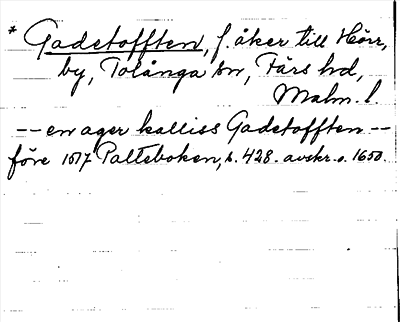 * Gadetofften, f. åker till Hörr,
by, Tolånga sn, Färs hd,
Malm. l.
-- en ager kalliss Gadetofften --
före 1617 Palteboken, s. 428. avskr. o. 1650.